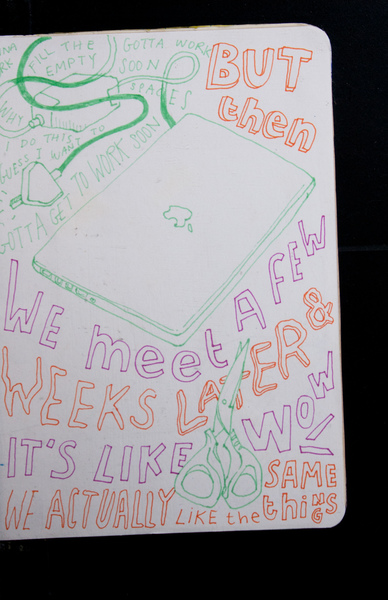 FILL THE
EMPTY
GOTTA WORK
SOON
SPACES
WHY
I DO THIS
GUESS I WANT TO
GOTTA GET TO WORK SOON
BUT
then
WE meet A FEW
WEEKS LATER &
IT'S LIKE WOW
WE ACTUALLY LIKE the SAME
thiNGS